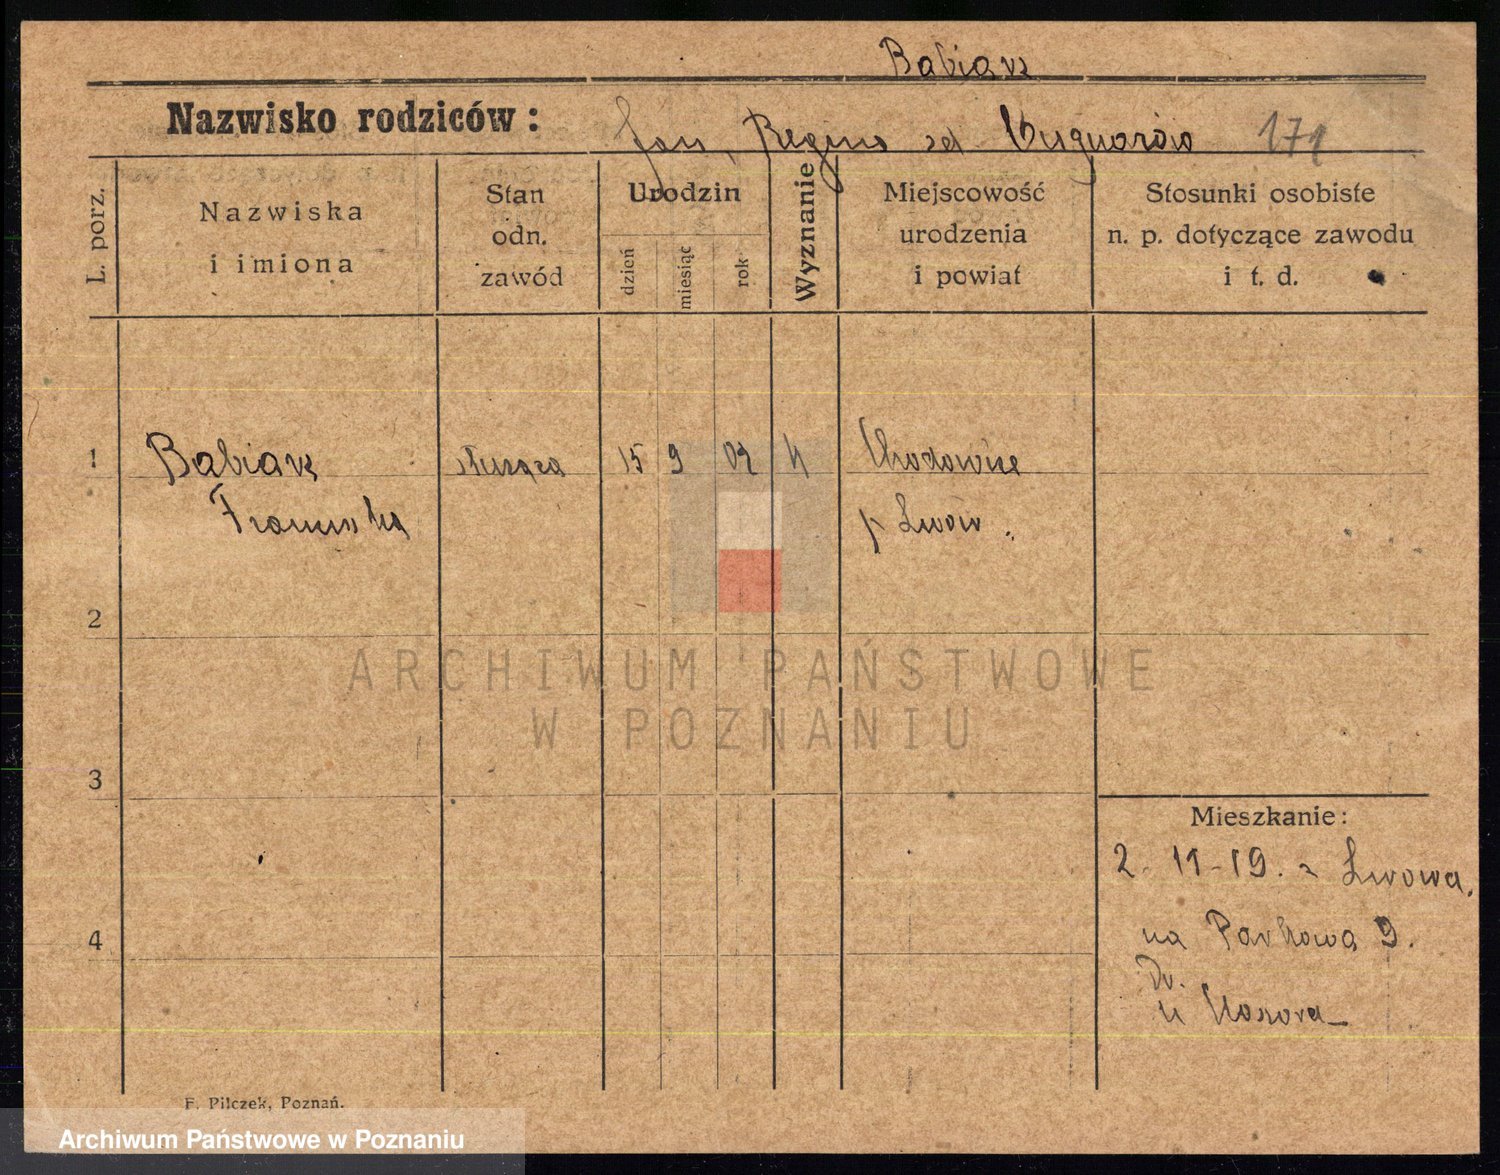 Babiarz
Nazwisko rodziców: Jan, Regina od 171
L. porz.
Nazwiska
i imiona
Stan
odn.
zawód
Urodzin
dzień
miesiąc
rok
Wyznanie
Miejscowość
urodzenia
i powiat
Stosunki osobiste
n. p. dotyczące zawodu
i t. d.
1 Babiarz służąca 15 9 02 Chodowice
Franciszka p Lwów.
2
ARCHIWUM PAŃSTWOWE
W POZNANIU
3
Mieszkanie:
2. 11-19. z Lwowa.
4
na Parkowa 9.
Dr.
u
F. Pilczek, Poznań.
Archiwum Państwowe w Poznaniu